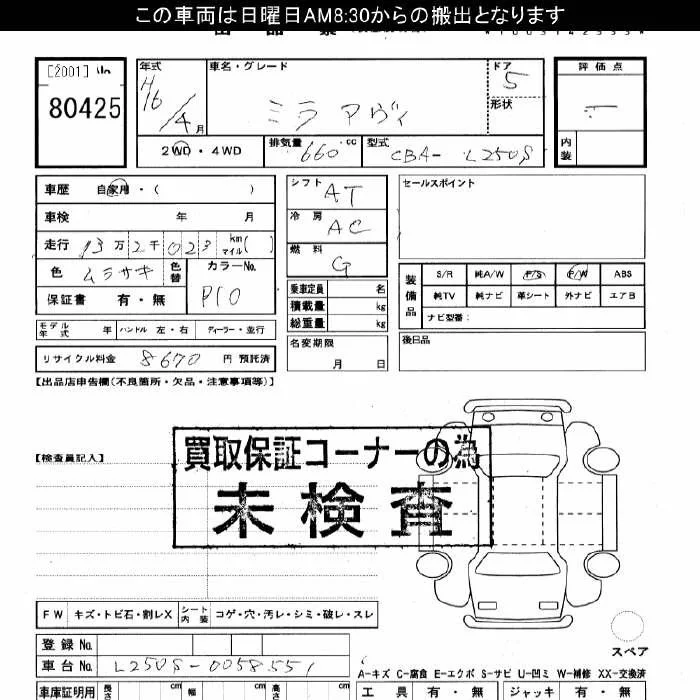 この車両は日曜日AM8:30からの搬出となります
[2001]
80425
年式
H16/4月
車名・グレード
ミラ アヴィ
ドア
5
形状
評価点
内装
2WD・4WD
排気量
660 cc
型式
CBA- L250S
車歴 自家用・( )
車検 年 月
走行 13万2千023 km マイル( )
色 ムラサキ
色替
カラーNo.
P10
保証書 有・無
シフト
AT
冷房
AC
燃料
G
セールスポイント
乗車定員 名
積載量 kg
総重量 kg
装備品
S/R 純A/W P/S P/W ABS
純TV 純ナビ 革シート 外ナビ エアB
ナビ型番:
モデル年式 年 ハンドル 左・右 ディーラー・並行
名変期限
月 日
後日品
リサイクル料金 8670 円 預託済
【出品店申告欄(不良箇所・欠品・注意事項等)】
【検査員記入】
買取保証コーナーの為
未検査
FW キズ・トビ石・割レX シート内装 コゲ・穴・汚レ・シミ・破レ・スレ
スペア
登録No.
車台No. L250S-0058551
A-キズ C-腐食 E-エクボ S-サビ U-凹ミ W-補修 XX-交換済
車庫証明用 長さ cm 幅 cm 高さ cm
工具 有・無 ジャッキ 有・無